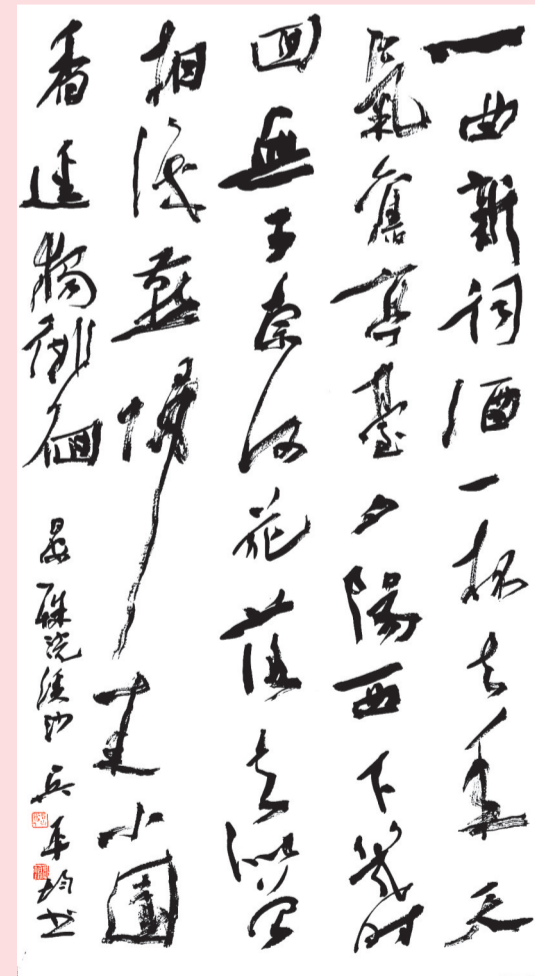 一曲新詞酒一杯去年天
氣舊亭臺夕陽西下幾時
回無可奈何花落去似曾
相識燕歸來小園
香徑獨徘徊
晏殊浣溪沙 书